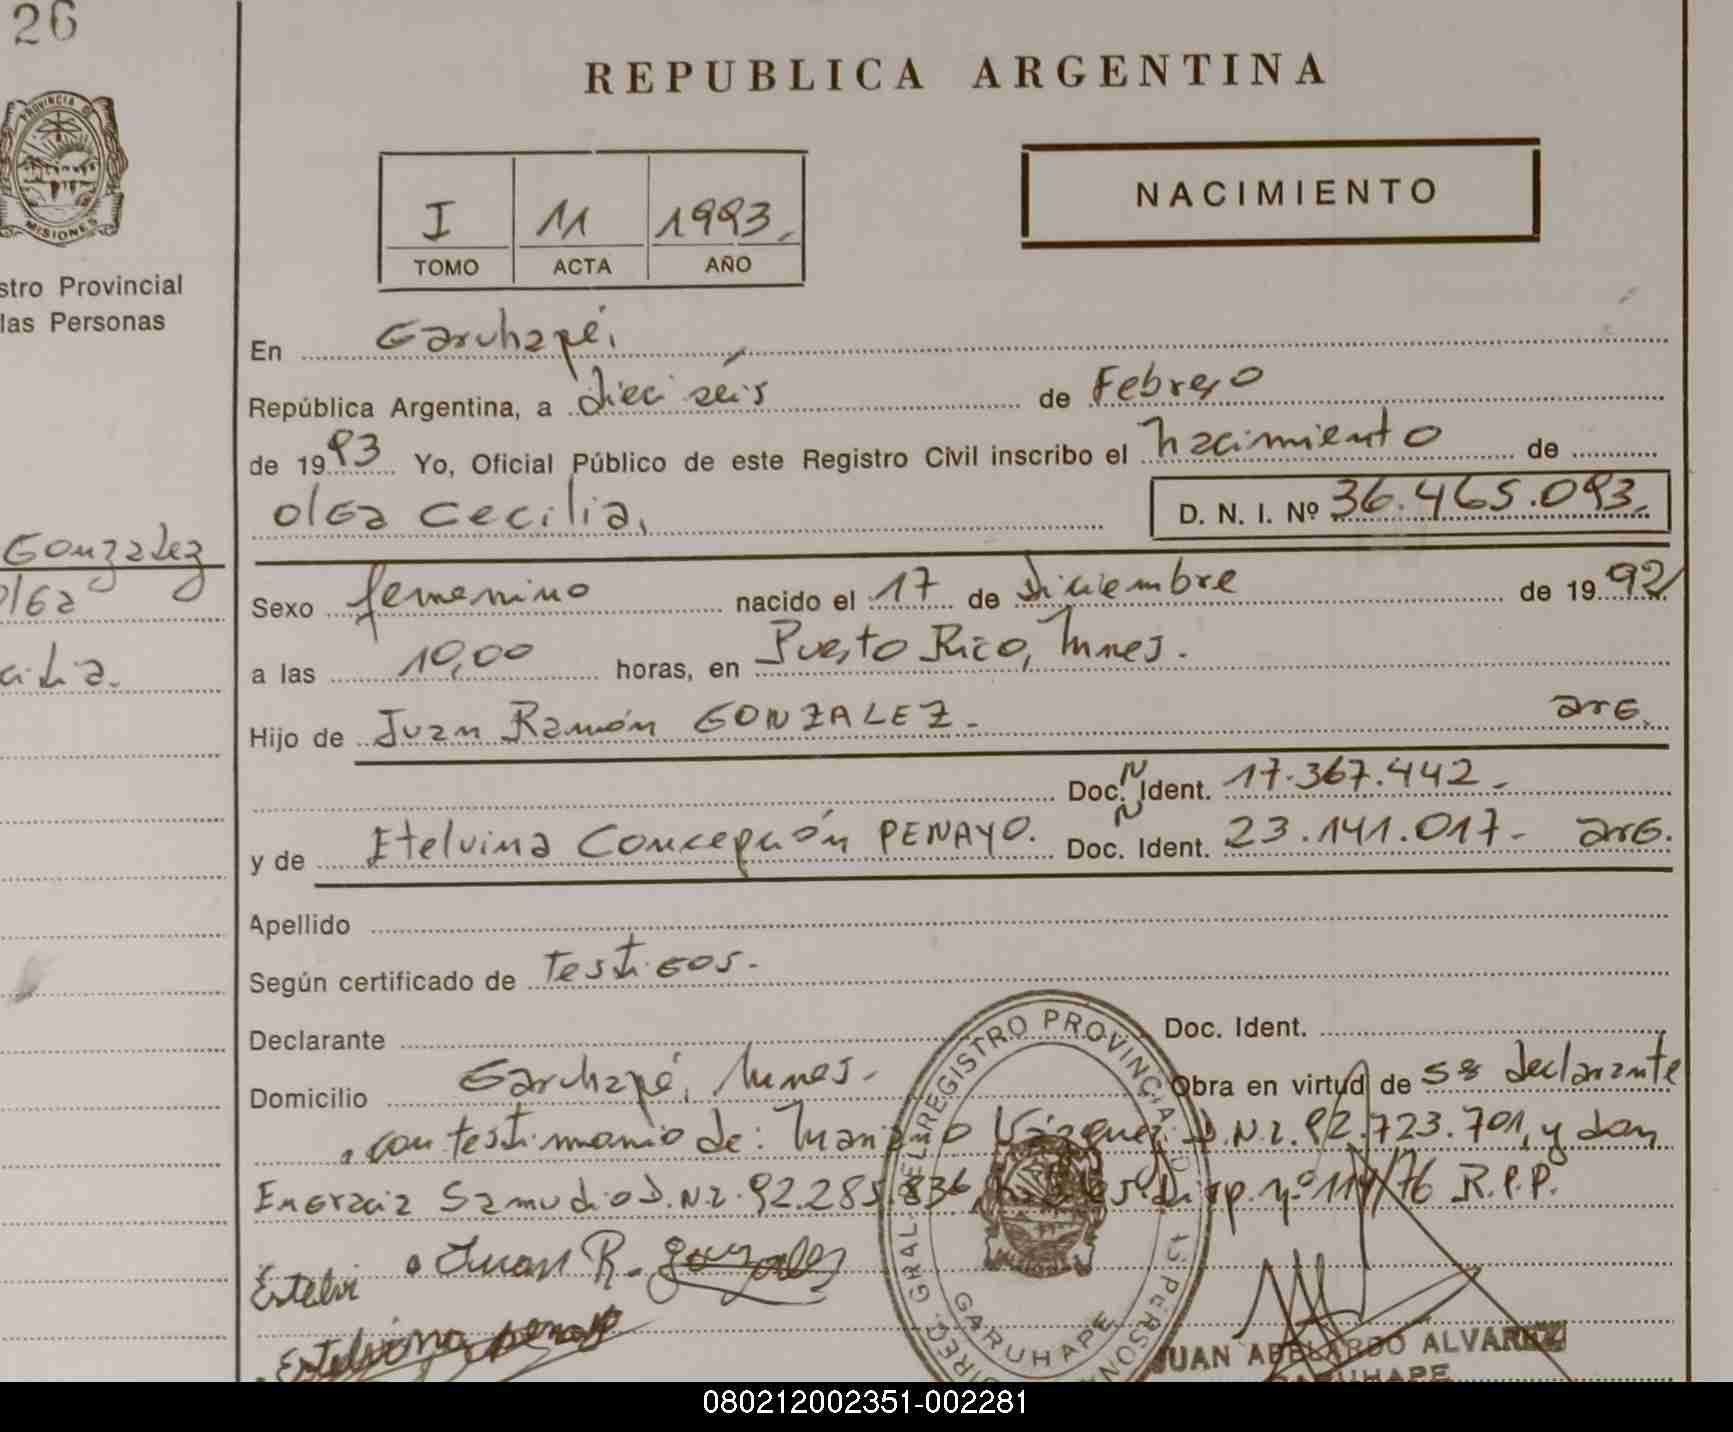 26
REPUBLICA ARGENTINA
PROVINCIA D
MISIONES
I 11 1993
TOMO ACTA AÑO
NACIMIENTO
stro Provincial
las Personas
En Garuhapé,
República Argentina, a dieciséis de Febrero
de 1993 Yo, Oficial Público de este Registro Civil inscribo el nacimiento de
Olga Cecilia, D. N. I. Nº 36.465.093.
Gonzalez
Olga
cilia.
Sexo femenino nacido el 17 de diciembre de 1992
a las 10,00 horas, en Puerto Rico, Mnes.
Hijo de Juan Ramón GONZALEZ - arg.
Doc. Ident. 17.367.442 -
y de Etelvina Concepción PENAYO. Doc. Ident. 23.141.017 - arg.
Apellido
Según certificado de Testigos.
Declarante Doc. Ident.
Domicilio Garuhapé, Mnes. Obra en virtud de ser declarante
con testimonio de: Mariano D.N.I. 92.723.701, y don
Engracia Samudio D.N.I. 92.285.836, Disp. nº 114/76 R.P.P.
Estelvi Juan R. gonzalez
Estelvina penayo
DIREC. GRAL. DEL REGISTRO PROVINCIAL
GARUHAPE
JUAN ABELARDO ALVAREZ
GARUHAPE
080212002351-002281